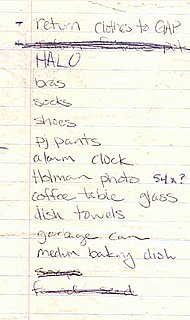 - return clothes to GAP
HALO
bras
socks
shoes
pj pants
alarm clock
Holman photo 54x?
coffee table glass
dish towels
garage can
medium baking dish
soap